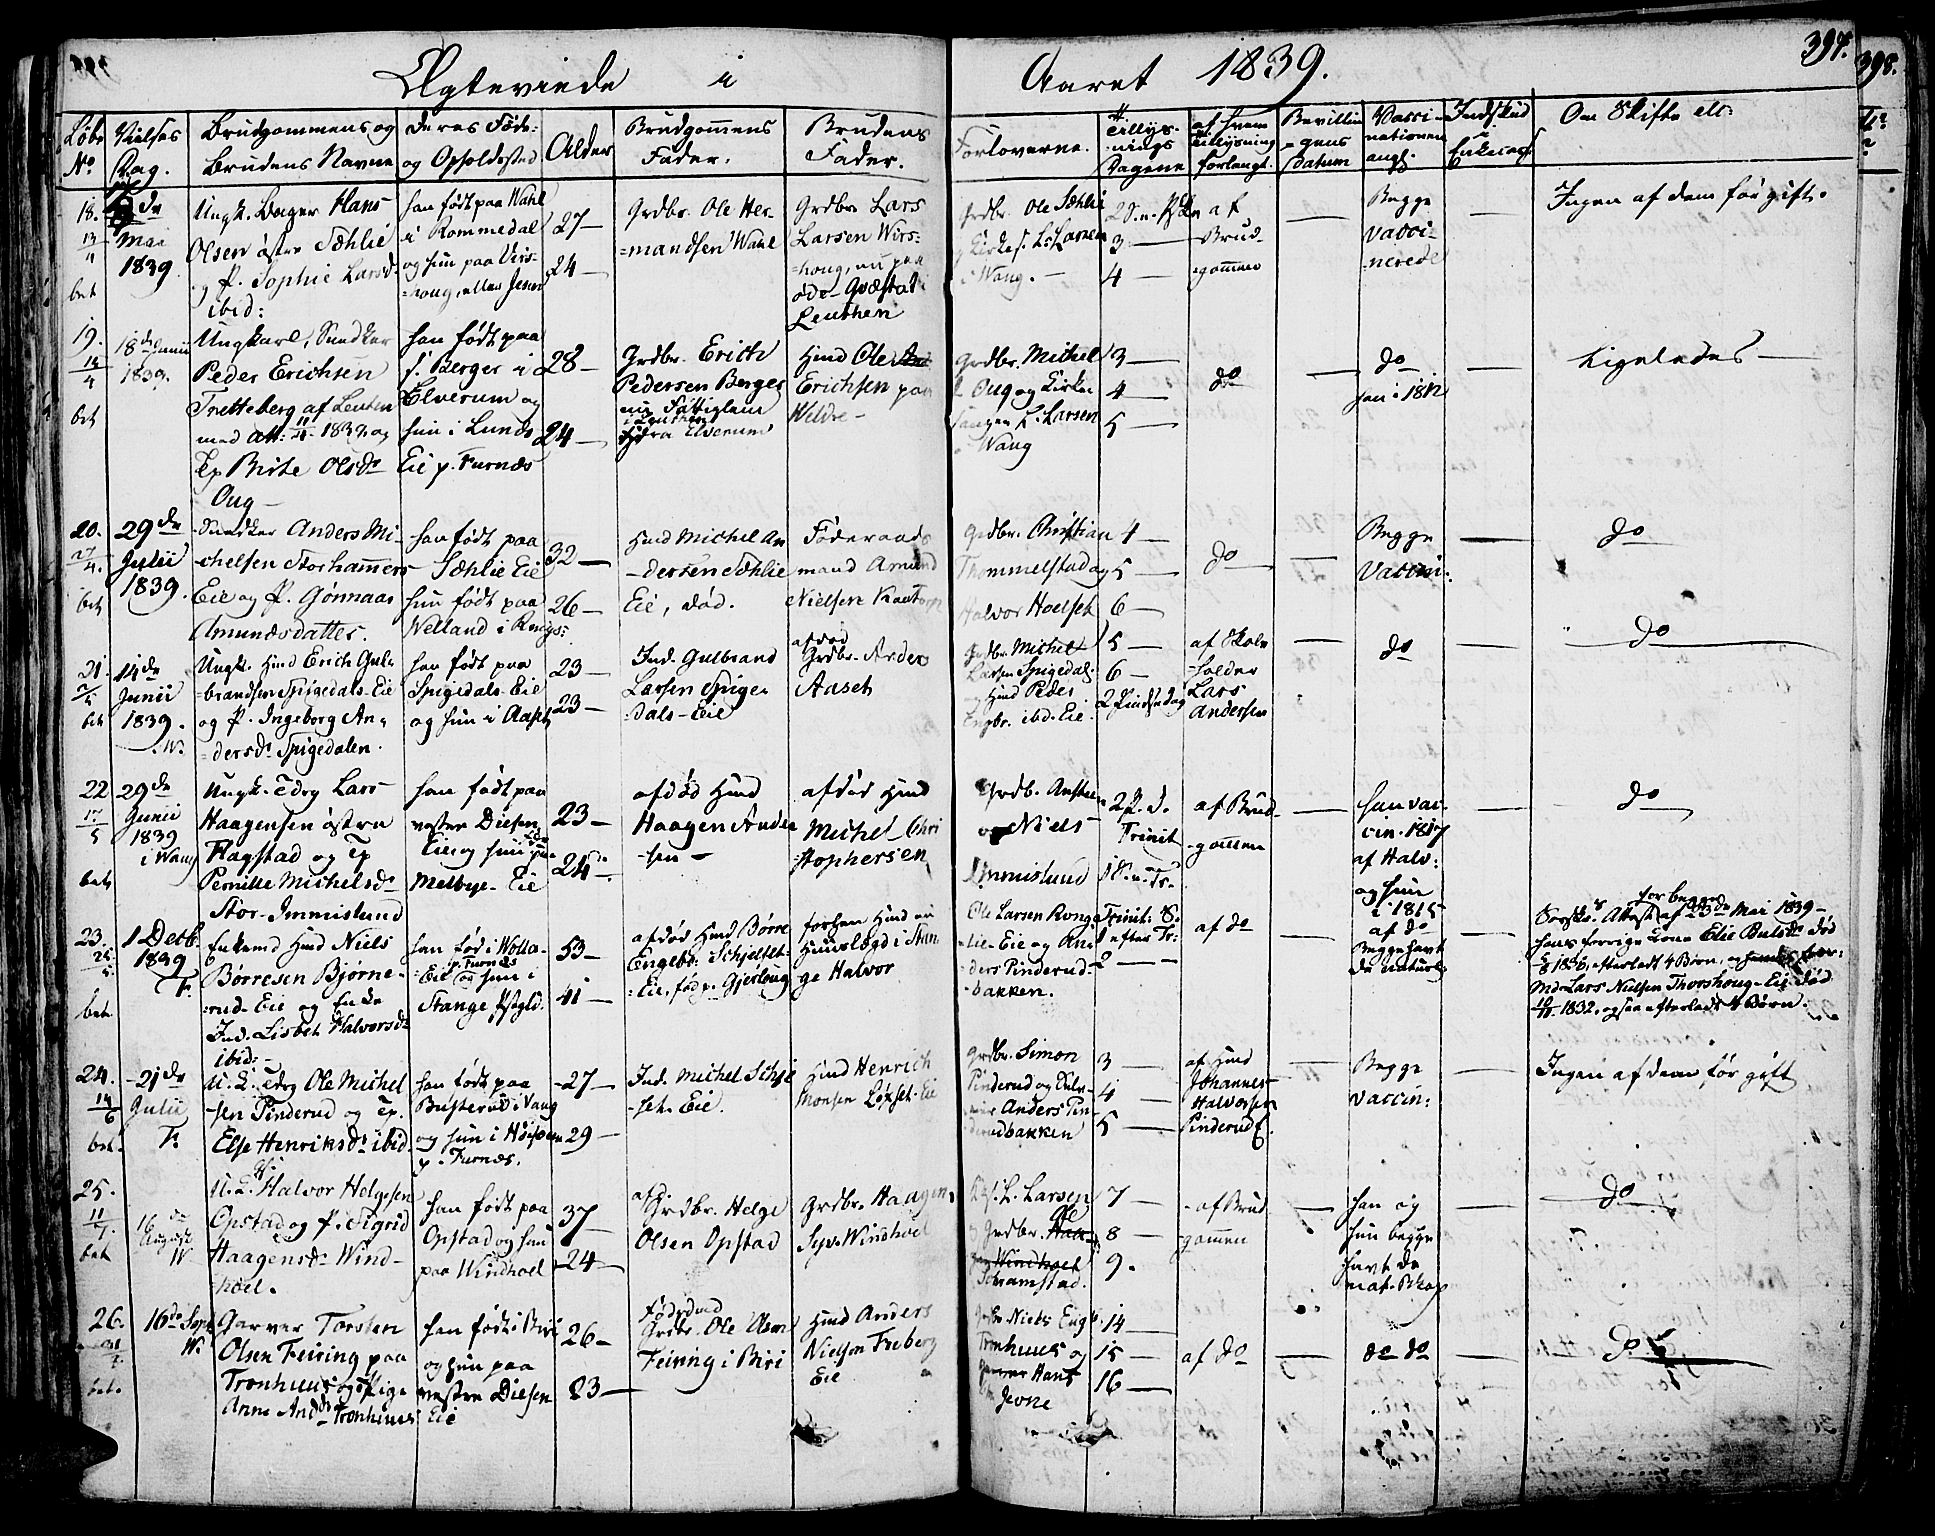 Ægteviede i Aaret 1839.
397.
398.
Løbe No
Vielses Dag.
Brudgommens og Brudens Navne
deres Føde- og Opholdssted
Alder
Brudgommens Fader.
Brudens Fader.
Forloverne.
Tillysnings Dagene
af hvem Tillysning forlangt.
Bevillingens Datum
Vaccinationen angl.
Indskud i Enkecass
Om Skifte ell:
18.
Mai
1839
bet
Ungk. Hans
Olsen østre Sæhlie
og P. Sophie Larsd.
ibid:
han født paa Wahl
i Rommedal
og hun paa Virs-
=houg, eller Jesnes
27—
24—
Grdbr. Ole Her-
=mandsen Wahl
Grdbr. Lars
Larsen Wirs=
=houg, nu paa
øde-Græstad i
Leuthen
Grdbr. Ole Sæhlie
g Kirkes. L: Larsen
i Wang.—
3—
4—
af
Brud-
gommen
Begge
vacci-
=nerede
Ingen af dem før gift.
19.
14/4
bet
18de Junii
1839.
Ungkarl, Snedker
Peder Erichsen
Tretteberg af Leuten
med Att: 1839 og
Ep Birte Olsdr
Oug—
han født paa
s. Berger i
Elverum og
hun i Lunds
Eie p. Furnæs
28—
24—
Grdbr. Erich
Pedersen Berger
nu Fattiglem
i Leuthen
fra Elverum
Hmd Ole
Erichsen paa
Weldre—
Grdbr. Michel
L Oug og Kirke
sanger L. Larsen
Wang
3—
4—
5—
do
do
han i 1812
Ligeledes—
20.
27/4.
bet
29de
Julii
1839.
Snedker Anders Mi-
chelsen Storhammers
Eie og P. Gønnaas
Amundsdatter.
han født paa
Sæhlie Eie
hun født paa
Welland i Rings:
32—
26—
Hmd Michel An
-dersen Sæhlie
Eie, død.
Føderaads
mand Amund
Nielsen
Grdbr. Christian
Thommelstad og
Halvor Hoelset
4—
5—
6—
do
Begge
Vaccin:
do
21.
bet
14de
Junii
1839.
W.
Ungk. Hmd Erich Gul-
=brandsen Spigedals-Eie
og P. Ingeborg An-
=dersdr Spigedalen.
han født paa
Spigedals-Eie
og hun i Aaset
23—
23—
Ind. Gulbrand
Larsen Spige-
=dals-Eie
afdød
Grdbr. Anders
Aaset
Grdbr. Michel
Larsen Spigedal-
og Hmd Peder
Engbr. ibd. Eie
5—
6—
2 Pindsedag
af Skole
-holder
Lars
Andersen
do
do
22
17/5
bet
29de
Junii
1839
i Wang
Ungk. Edvg Lars
Haagensen østre
Flagstad og Ep
Pernille Michelsdr
Stor-Immislund
han født paa
vestre Diesen
Eie og hun paa
Melbye-Eie
23—
24—
afdød Hmd
Haagen Ander
-sen—
afdød Hmd
Michel Chri
-stophersen
og Niels
Immislund
Trinit
af Brud-
-gommen
han vac-
cin. 1817
af Halv:
og hun
i 1815
af do
do
23.
bet.
1 Decb.
1839
F.
Enkemd Hmd Niels
Børresen Bjørne-
rud-Eie og Enke
Ind. Lisbet Halvorsdr
ibid:—
han fød i Wolla-
=Eie p. Furnæs og hun i
Stange Pstgld.
53—
41—
afdød Hmd Børre
Engebr. Schjelset-
=Eie, fød p. Gjerloug
forhen Hmd nu
Huuslægd i Stan
ge Halvor
Ole Larsen Ronge-
lie-Eie og An-
ders Pinderud-
bakken.
Trinit: S.
1 efter Tr:
2——
af do
Begge havt
de naturl.
Sorskr.s Attest for begge af 23de Mai 1839—
hans forrige Kone Elie Pauls... død
1836, efterladt 4 Børn, og
Md Lars Nielsen Thorshoug-Eie død
1832, ogsaa efterladt 4 Børn.
24.
14/6
bet.
21de
Julii
F.
U.K. Edvg Ole Michel
-sen Pinderud og Ep.
Else Henriksdr ibid.
han født paa
Busterud i Vang
og hun i
p. Furnæs.
-27—
-29—
Ind. Michel Schjel
-set Eie.
Hmd Henrich
Monsen Løkset-Eie
Grdbr. Simon
Pinderud og
Anders Pin-
derudbakken
3—
4—
5—
af Hmd
Johannes
Halvorsen
Pinderud E.
Begge
vaccin:
Ingen af dem før gift
25.
11/7.
bet
16 de
August
W
U.K. Halvor Helgesen
Opstad og P. Sigrid
Haagensdr Wind-
-hoel.
han født paa
Opstad og hun
paa Windhoel
37—
24—
afd.
Grdbr. Helge
Olsen Opstad
Grdbr. Haagen
Syv. Windhoel
L. Larsen
og Grdbr. Ole
Schramstad.
7—
8—
9.
-af Brud
-gommen
han og
hun begge
havt de
nat. Kop
do
26.
bet.
16de Sept
W.
Garver Torsten
Olsen Feiring paa
Tronhuus og Pige
Anne Andrsdr Tronhuus
han født i Biri
og hun paa
vestre Diesen
Eie
26—
23—
Føderaad
Grdbr. Ole Olsen
Feiring i Biri
Hmd Anders
Nielsen Freberg
Eie
Grdbr Niels Engb.
Tronhuus og
Hans
Jevne
14—
15—
16—
af do
do do
do